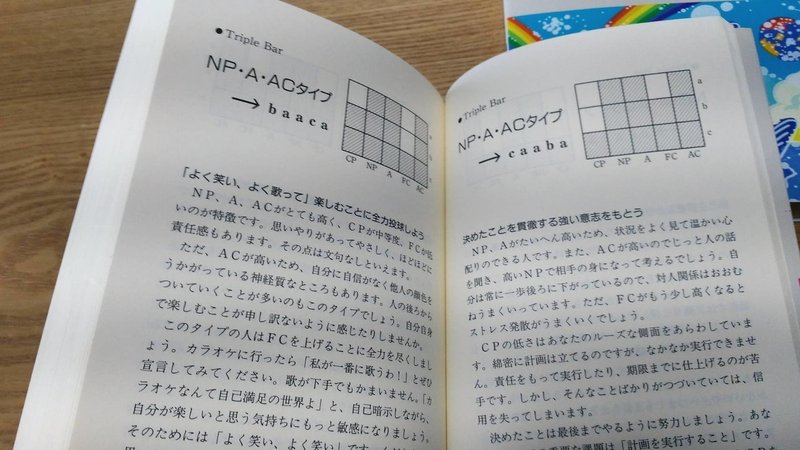 ●Triple Bar
NP・A・ACタイプ
→ b a a c a
a
b
c
CP NP A FC AC
「よく笑い、よく歌って」楽しむことに全力投球しよう
NP、A、ACがとても高く、CPが中等度、FCが低
いのが特徴です。思いやりがあってやさしく、ほどほどに
責任感もあります。その点は文句なしといえます。
ただ、ACが高いため、自分に自信がなく他人の顔色を
うかがっている神経質なところもあります。人の後ろから
ついていくことが多いのもこのタイプでしょう。自分自身
で楽しむことが申し訳ないように感じたりしませんか。
このタイプの人はFCを上げることに全力を尽くしまし
ょう。カラオケに行ったら「私が一番に歌うわ!」とぜひ
宣言してみてください。歌が下手でもかまいません。「カ
ラオケなんて自己満足の世界よ」と、自己暗示しながら、
自分が楽しいと思う気持ちにもっと敏感になりましょう。
そのためには「よく笑い、よく笑い」です
●Triple Bar
NP・A・ACタイプ
→ c a a b a
a
b
c
CP NP A FC AC
決めたことを貫徹する強い意志をもとう
NP、Aがたいへん高いため、状況をよく見て温かい心
配りのできる人です。また、ACが高いのでじっと人の話
を聞き、高いNPで相手の身になって考えるでしょう。自
分は常に一歩後ろに下がっているので、対人関係はおおむ
ねうまくいっています。ただ、FCがもう少し高くなると
ストレス発散がうまくいくでしょう。
CPの低さはあなたのルーズな側面をあらわしていま
す。綿密に計画は立てるのですが、なかなか実行できませ
ん。責任をもって実行したり、期限までに仕上げるのが苦
手です。しかし、そんなことばかりがつづいていては、信
用を失ってしまいます。
決めたことは最後までやるように努力しましょう。あな
重要な課題は「計画を実行すること」です。